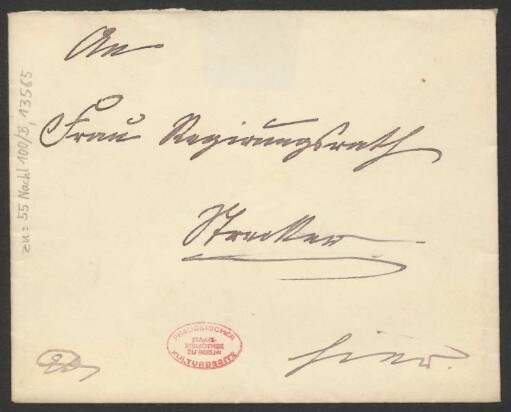 An
Frau Regirungsrath
Strecker
hier.
zu: 55 Nachl 100/B, 13565
PREUSSISCHER
STAATS-
BIBLIOTHEK
ZU BERLIN
KULTURBESITZ